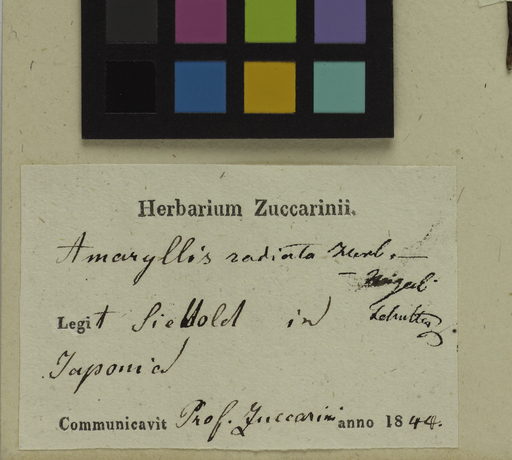 Herbarium Zuccarinii.
Amaryllis radiata Herb. —
Legit Siebold in
Japonia
Communicavit Prof. Zuccarini anno 1844.